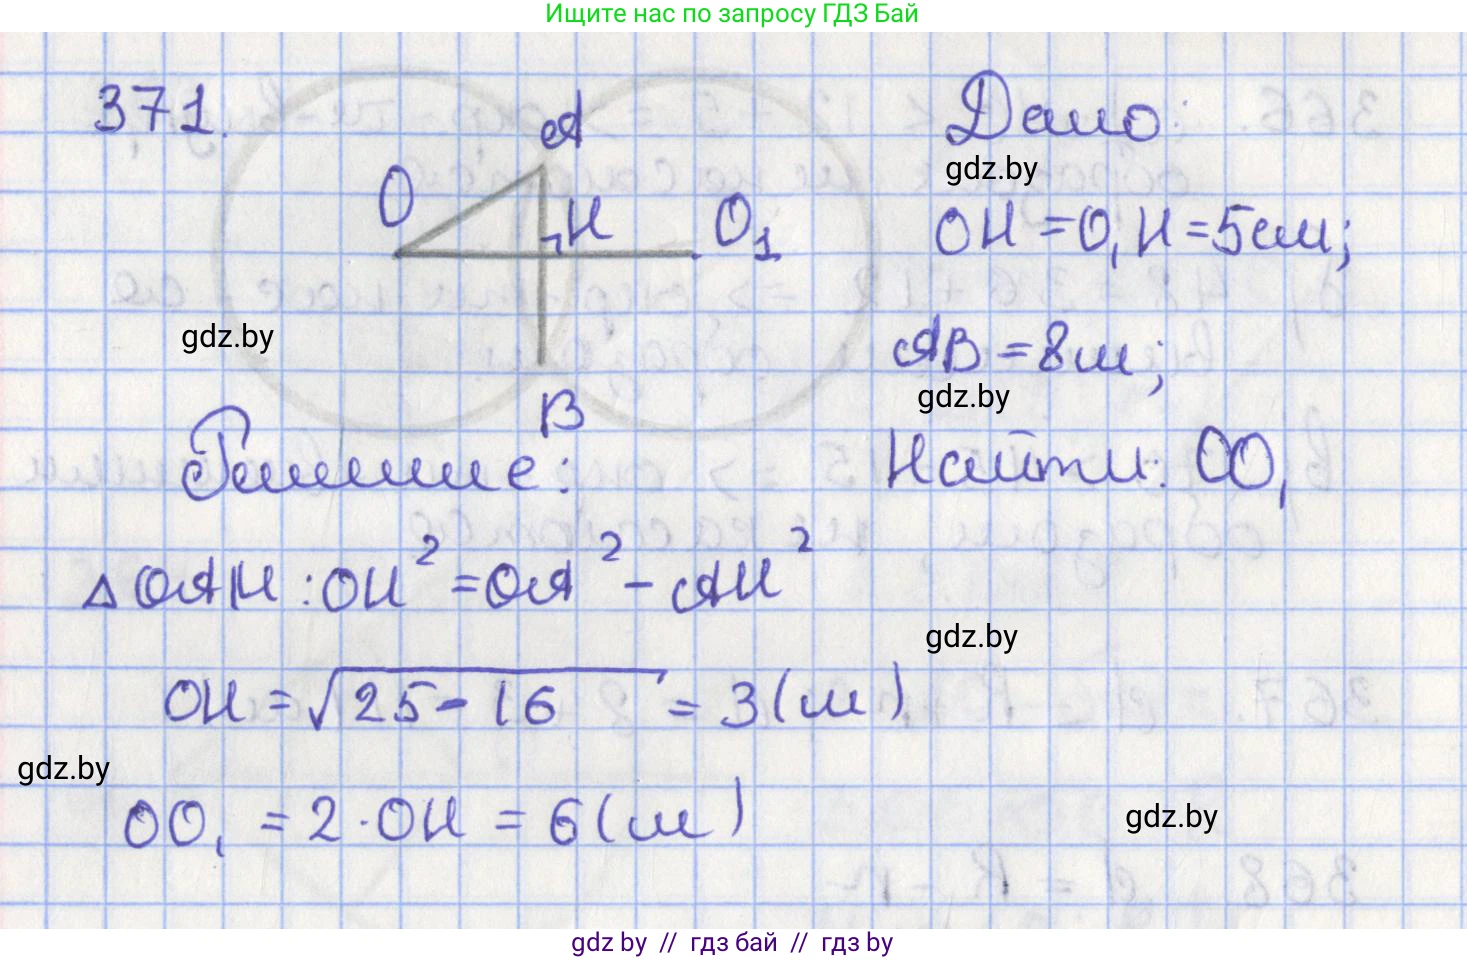 Ищите нас по запросу ГДЗ Бай
371.
A
O
H
O₁
B
Дано:
gdz.by
OH = O₁H = 5см;
gdz.by
AB = 8см;
gdz.by
Решение:
Найти: OO₁
△OAH: OH² = OA² - AH²
gdz.by
OH = √25 - 16 = 3(см)
gdz.by
OO₁ = 2 · OH = 6(см)
gdz.by
gdz by // гдз бай // гдз by